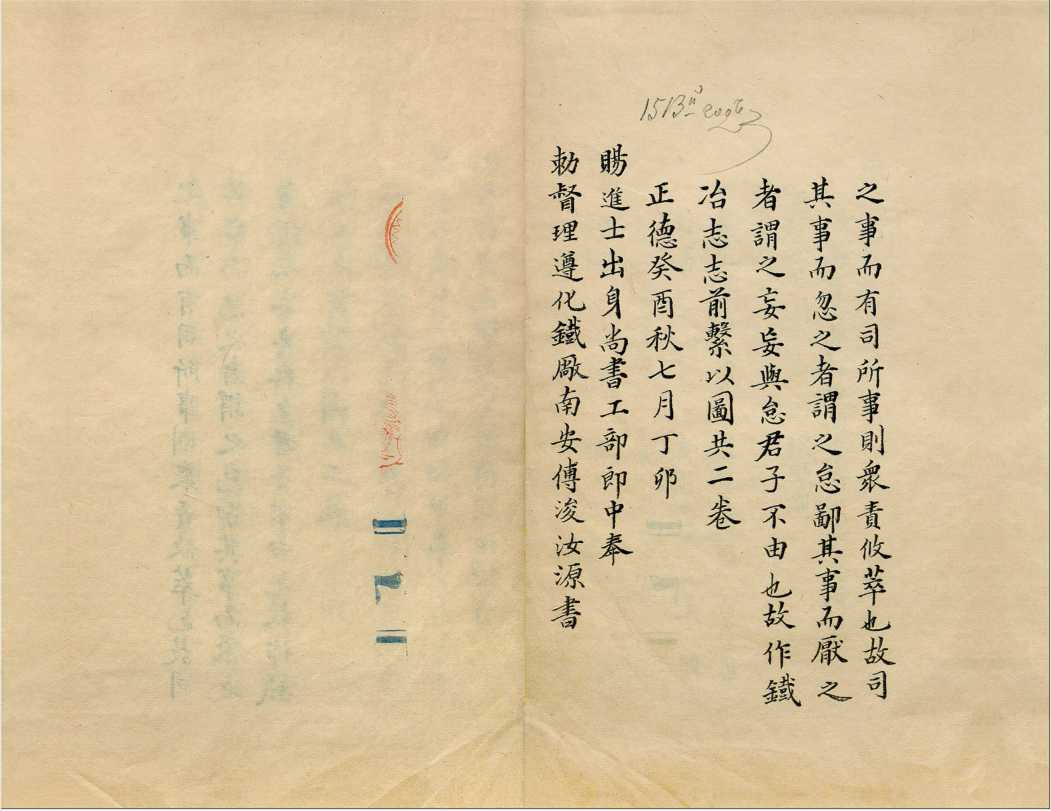 之事而有司所事則衆責攸萃也故司
其事而忽之者謂之怠鄙其事而厭之
者謂之妄妄與怠君子不由也故作鐵
冶志志前繫以圖共二卷
正德癸酉秋七月丁卯
賜進士出身尚書工部郎中奉
勅督理遵化鐵厰南安傅浚汝源書